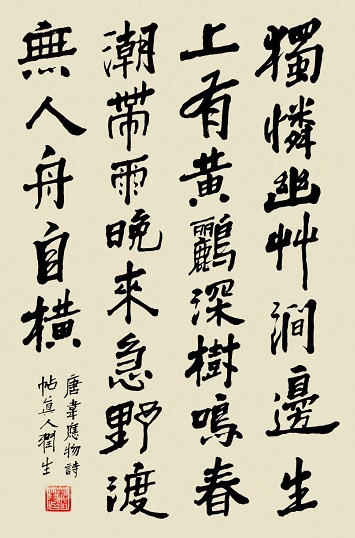 獨憐幽艸澗邊生
上有黃鸝深樹鳴春
潮帶雨晚來急野渡
無人舟自橫
唐韋應物詩
帖真人潤生